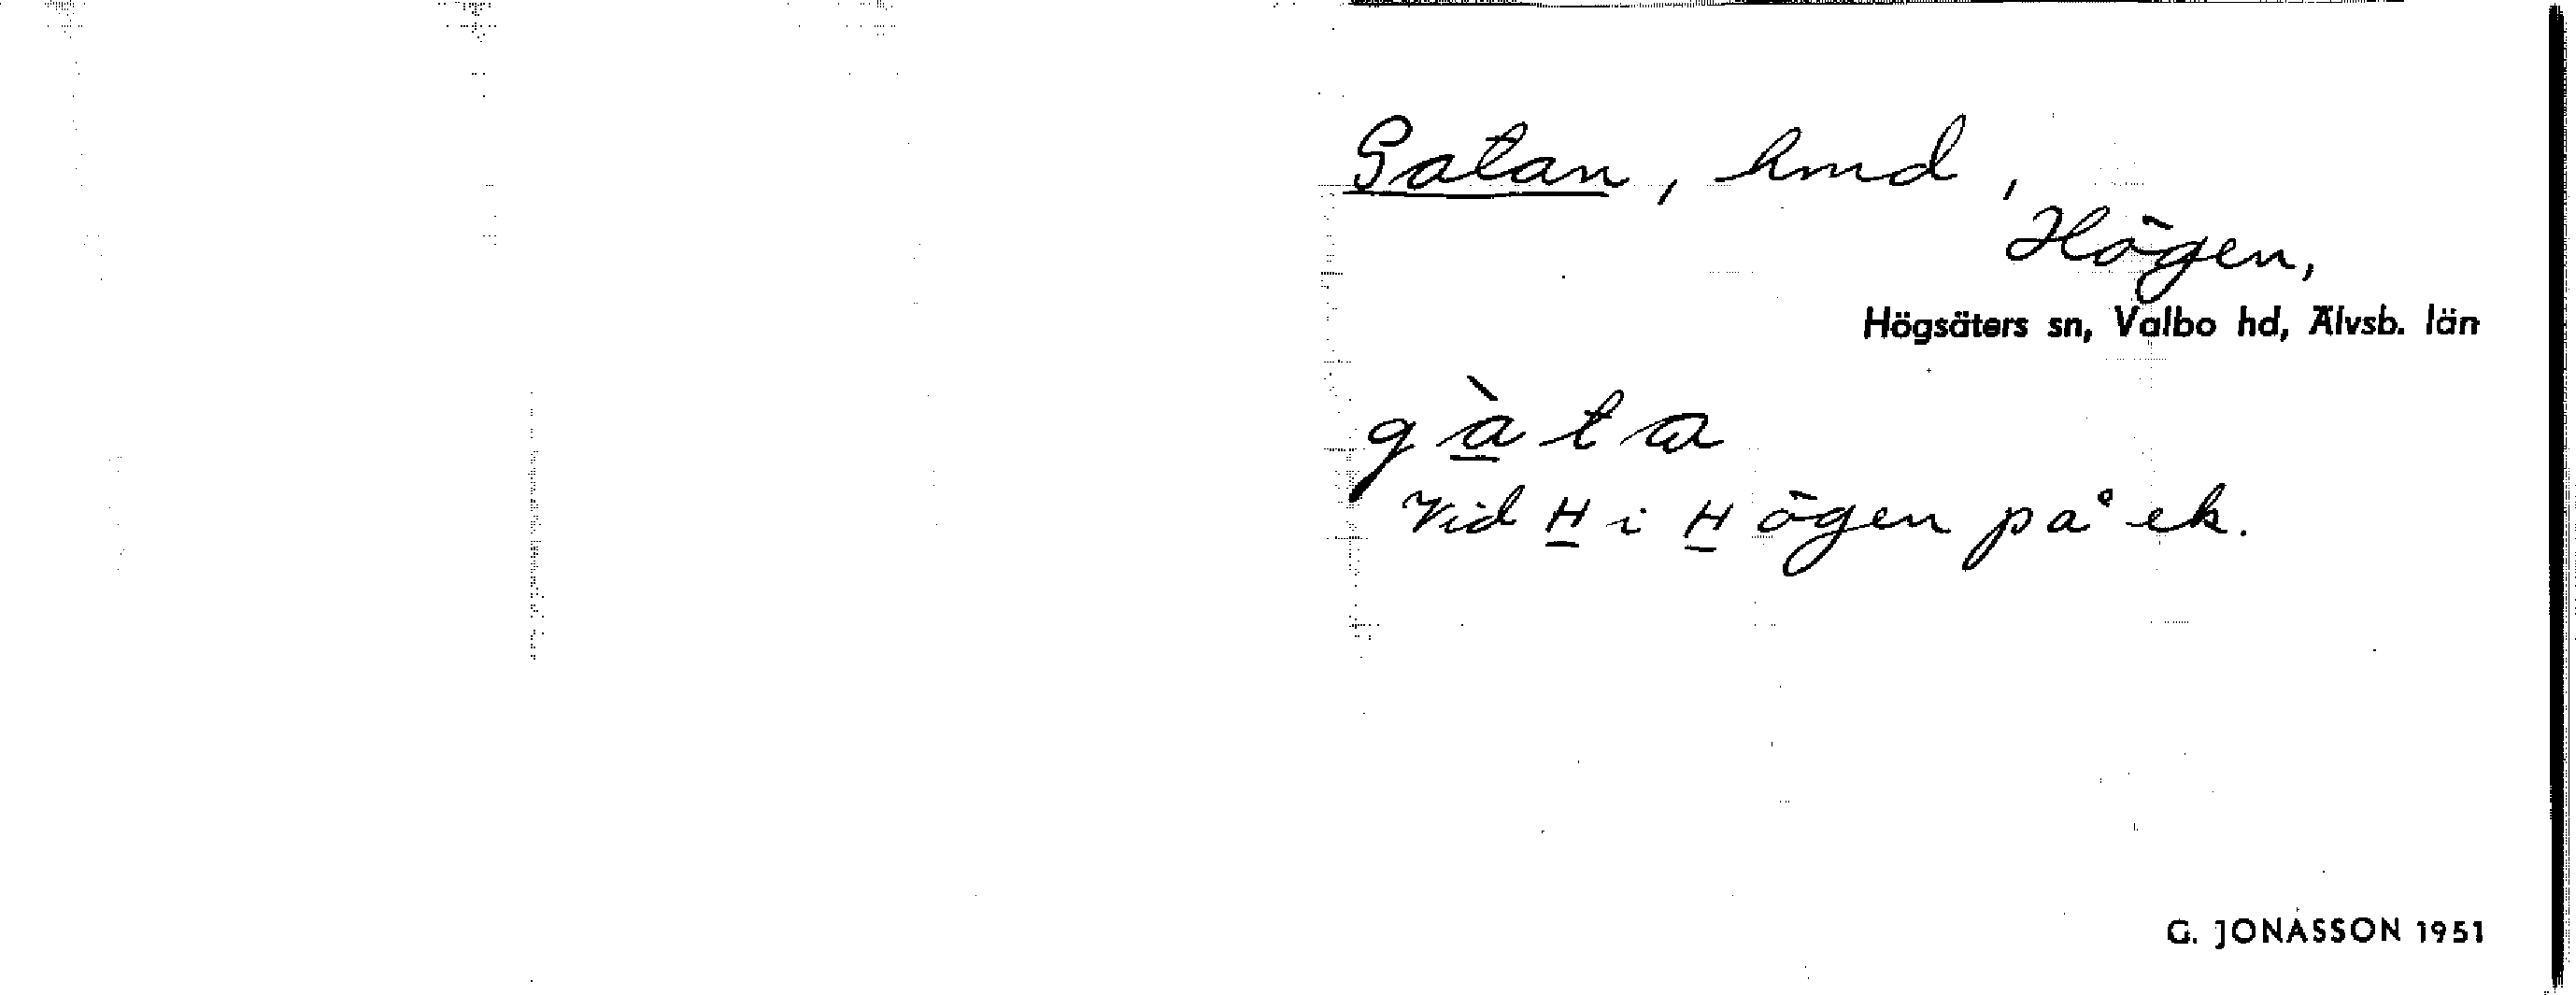 Gatan, hmd,
Högen,
Högsäters sn, Valbo hd, Älvsb. län
gàta
Vid H i Högen på ek.
G. JONASSON 1951